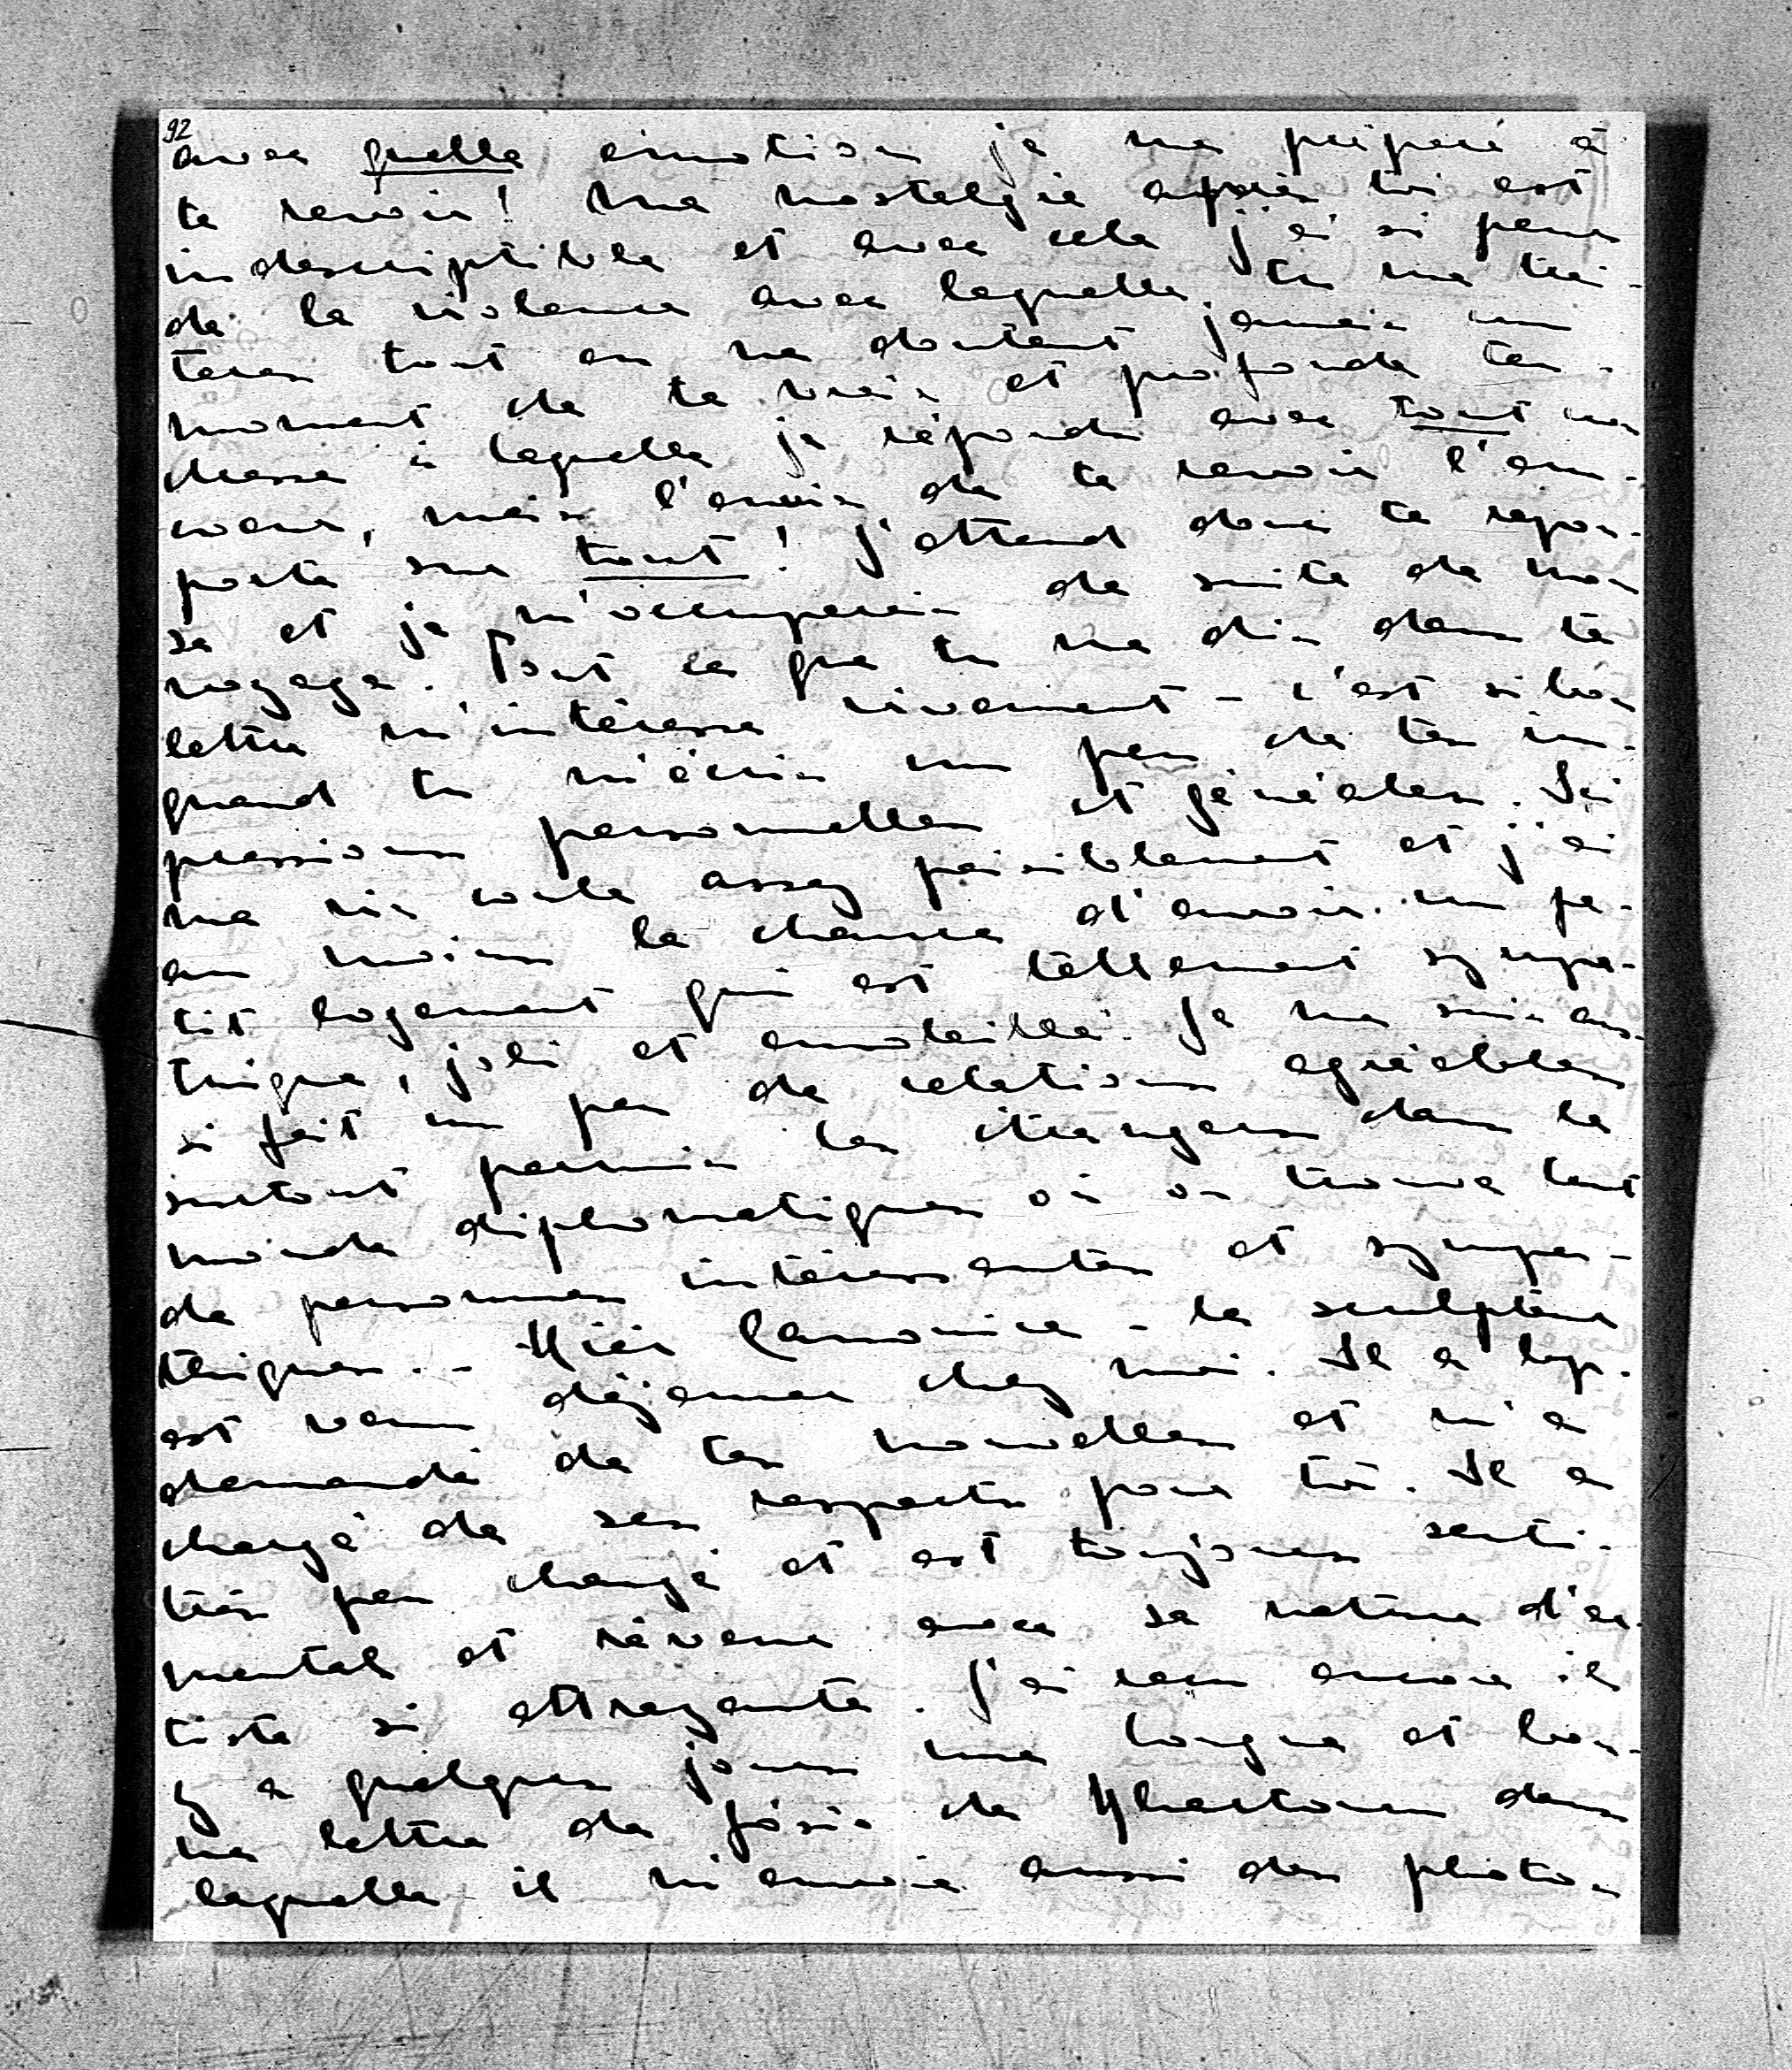 92
avec quelle émotion je me prépare à
te revoir! Ma nostalgie après toi est
indescriptible et avec cela j'ai si peur
de la violence avec laquelle tu me trai-
teras tout en ne doutant jamais un
moment de ta vraie et profonde ten-
dresse à laquelle je réponds avec tout mon
coeur, mais l'envie de te revoir l'em-
porte sur tout! J'attend donc ta répon-
se et je m'occuperais de suite de mon
voyage. Tout ce que tu me dis dans ta
lettre m'intéresse vivement - c'est si bon
quand tu m'écris un peu de tes im-
pressions personnelles et générales. Ici
ma vie coule assez paisiblement et j'ai
au moins la chance d'avoir un pe-
tit logement qui est tellement sympa-
thique, joli et ensoleillé. Je me suis aus-
si fait un peu de relations agréables
surtout parmis les étrangers dans le
monde diplomatiques où on trouve tant
de personnes intéressantes et sympa-
thiques. - Hier Canonica - le sculpteur
est venu déjeuner chez moi. Il a lgp.
demandé de tes nouvelles et m'a
chargé de ses respects pour toi. Il a
très peu changé et est toujours senti-
mental et rêveur avec sa nature d'ar-
tiste si attrayante. J'ai reçu encore il
y a quelques jours une longue et bon-
ne lettre de de Khartoum dans
laquelle il m'envoie aussi des photos